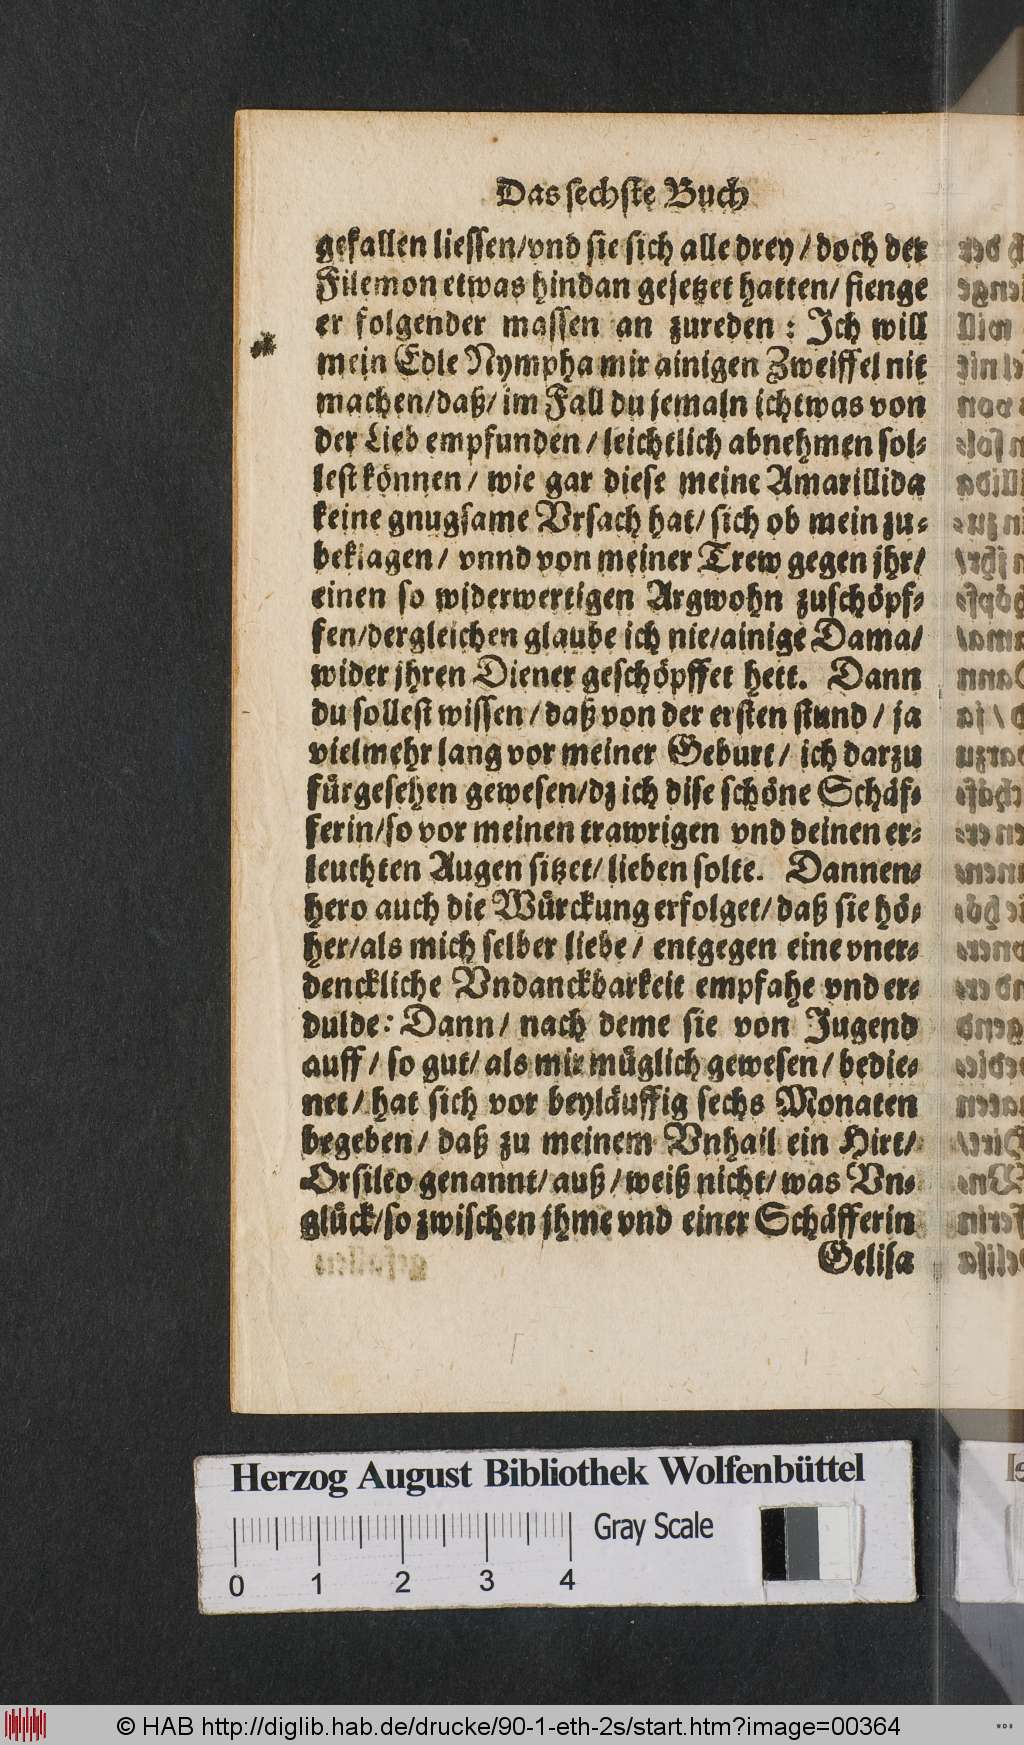 Das sechste Buch
gefallen liessen/vnd sie sich alle drey/doch der
Filemon etwas hindan gesetzet hatten/ fienge
er folgender massen an zureden : Jch will
mein Edle Nympha mir ainigen Zweiffel nit
machen/daß/ im Fall du jemaln ichtwas von
der Lieb empfunden/leichtlich abnehmen sol-
lest können/ wie gar diese meine Amarillida
keine gnugsame Vrsach hat/ sich ob mein zu-
beklagen/ vnnd von meiner Trew gegen jhr/
einen so widerwertigen Argwohn zuschöpf-
fen/dergleichen glaube ich nie/ainige Dama/
wider jhren Diener geschöpffet hett. Dann
du sollest wissen/daß von der ersten stund/ ja
vielmehr lang vor meiner Geburt/ ich darzu
fürgesehen gewesen/dz ich dise schöne Schäf-
ferin/so vor meinen trawrigen vnd deinen er-
leuchten Augen sitzet/ lieben solte. Dannen-
hero auch die Würckung erfolget/ daß sie hö-
her/als mich selber liebe/ entgegen eine vner-
denckliche Vndanckbarkeit empfahe vnd er-
dulde: Dann/ nach deme sie von Jugend
auff/ so gut/ als mir müglich gewesen/ bedie-
net/ hat sich vor beyläuffig sechs Monaten
begeben/ daß zu meinem Vnhail ein Hirt/
Orsileo genannt/ auß/ weiß nicht/ was Vn-
glück/so zwischen jhme vnd einer Schäfferin
Gelisa
Herzog August Bibliothek Wolfenbüttel
Gray Scale
0 1 2 3 4
© HAB http://diglib.hab.de/drucke/90-1-eth-2s/start.htm?image=00364